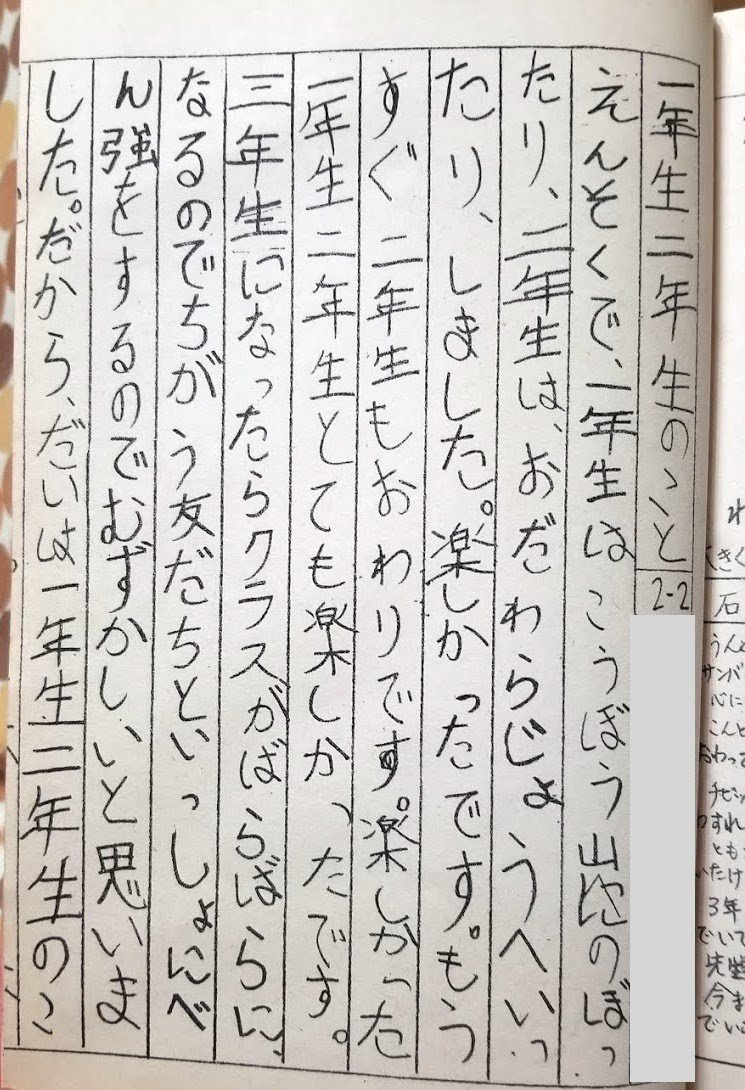 一年生二年生のこと 2-2
えんそくで、一年生はこうぼう山にのぼっ
たり、二年生は、おだわらじょうへいっ
たり、しました。楽しかったです。もう
すぐ二年生もおわりです。楽しかった
一年生二年生とても楽しかったです。
三年生になったらクラスがばらばらに、
なるのでちがう友だちといっしょにべ
ん強をするのでむずかしいと思いま
した。だから、だいは一年生二年生のこ
石
うんど
サンバ
心に
こんと
おわって
ともっ
いたけ
3年
でいて
先生
今ま
でい